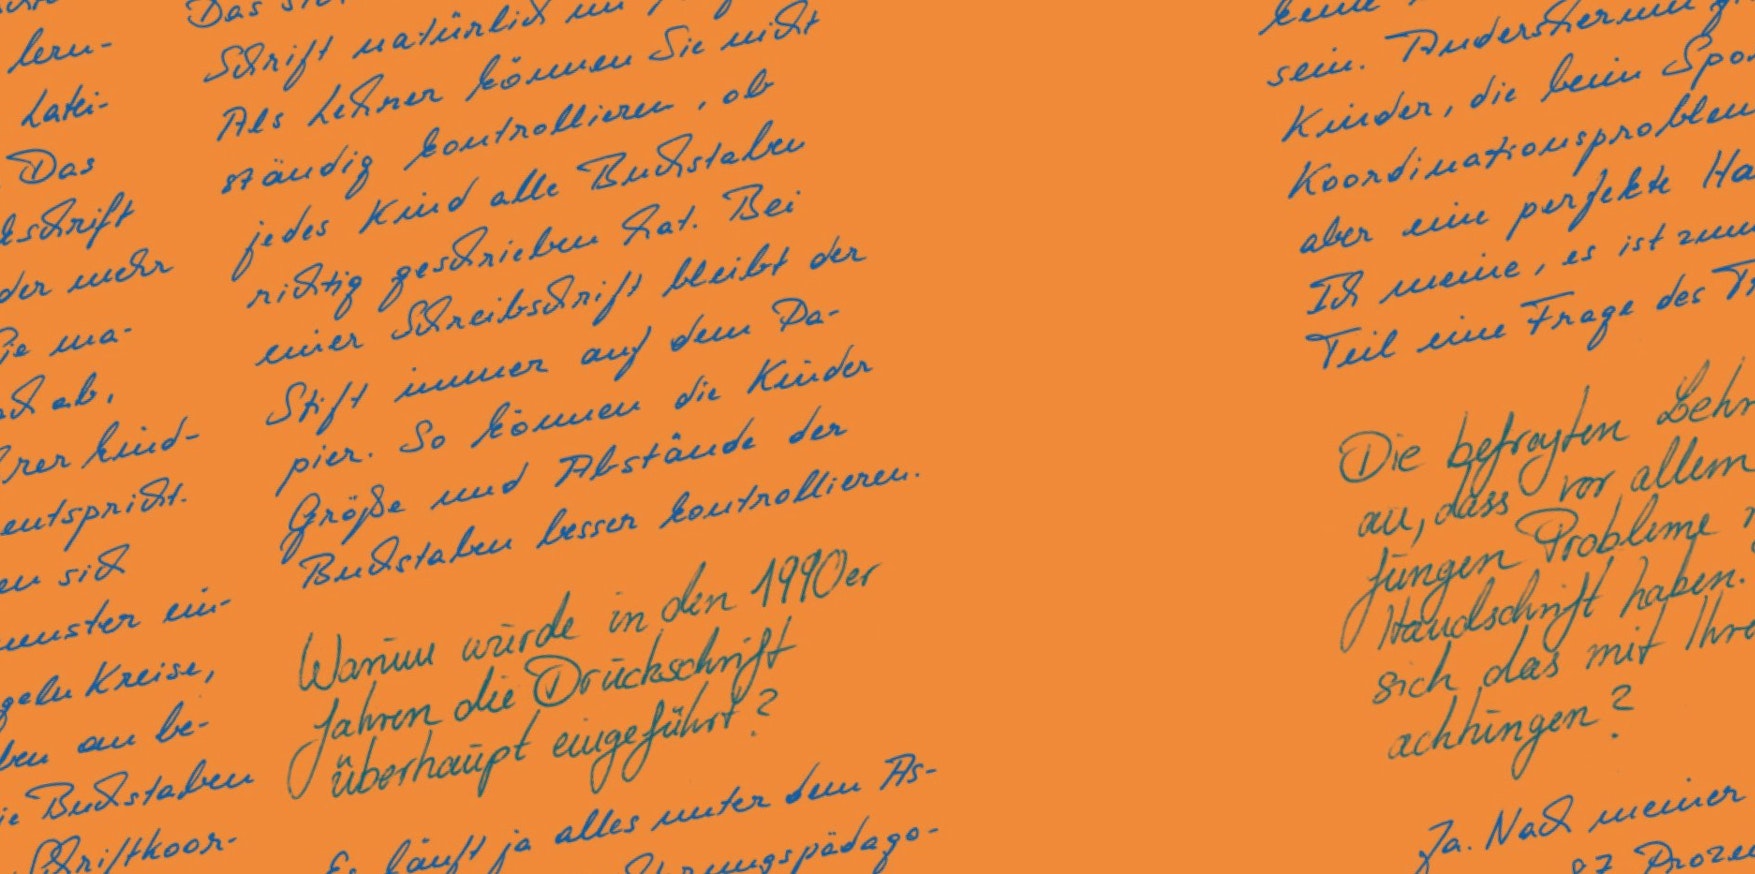 lern-
Latei-
Das
der mehr
ma-
ab,
kind-
entspricht.
sich
ein-
Kreise,
an be-
Buchstaben
Schriftkoor-
Das
Schrift natürlich im
Als Lehrer können Sie nicht
ständig kontrollieren, ob
jedes Kind alle Buchstaben
richtig geschrieben hat. Bei
einer Schreibschrift bleibt der
Stift immer auf dem Pa-
pier. So können die Kinder
Größe und Abstände der
Buchstaben besser kontrollieren.
Warum wurde in den 1990er
Jahren die Druckschrift
überhaupt eingeführt?
Es läuft ja alles unter dem As-
keine
sein. Andersherum
Kinder, die beim
aber eine perfekte
Ich meine, es ist
Teil eine Frage des
Die befragten
an, dass vor allem
Jungen Probleme
Handschrift haben.
sich das mit
achtungen?
Ja. Nach meiner